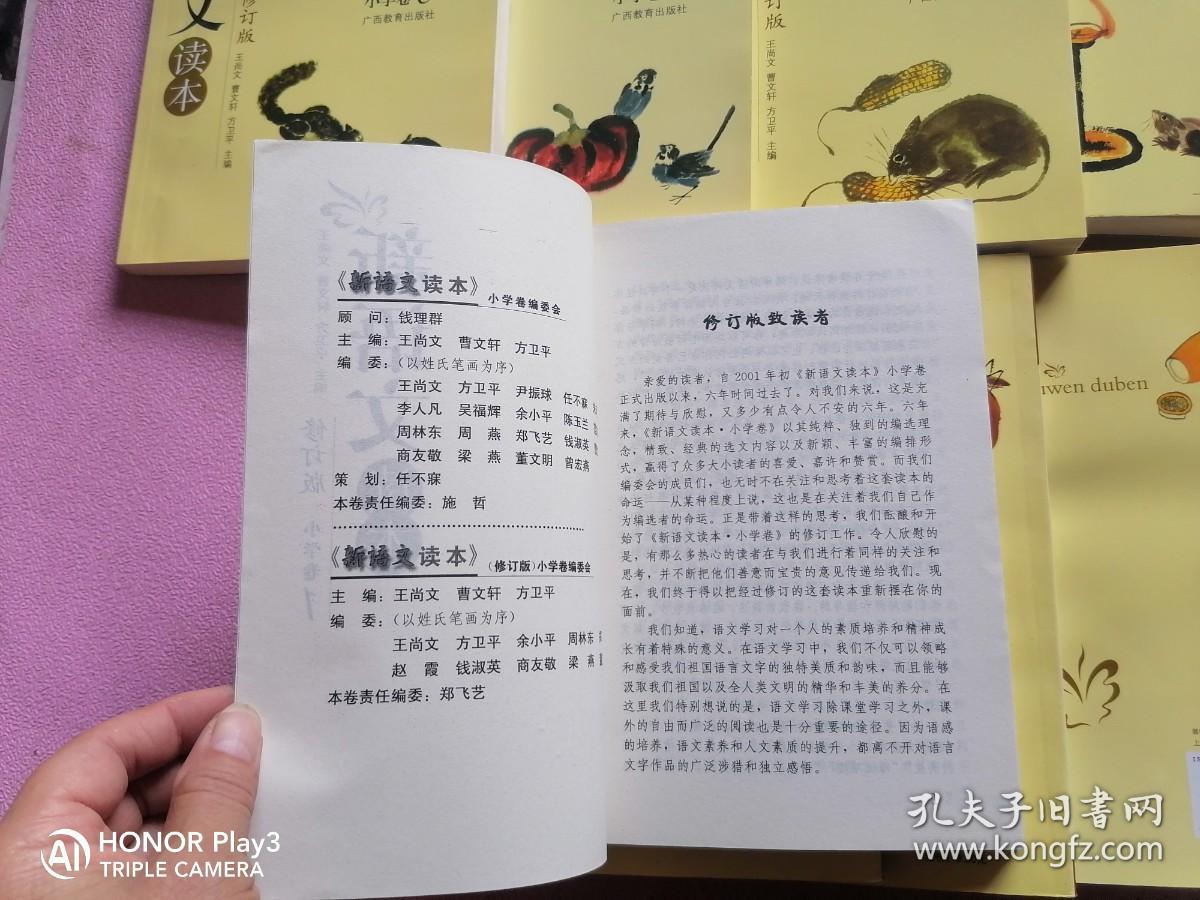 文
读本
修订版
王尚文 曹文轩 方卫平 主编
小学卷
广西教育出版社
订版
王尚文 曹文轩 方卫平 主编
《新语文读本》小学卷编委会
顾 问：钱理群
主 编：王尚文 曹文轩 方卫平
编 委：（以姓氏笔画为序）
王尚文 方卫平 尹振球 任不寐
李人凡 吴福辉 余小平 陈玉兰
周林东 周 燕 郑飞艺 钱淑英
商友敬 梁 燕 董文明 曾宏燕
策 划：任不寐
本卷责任编委：施 哲
《新语文读本》（修订版）小学卷编委会
主 编：王尚文 曹文轩 方卫平
编 委：（以姓氏笔画为序）
王尚文 方卫平 余小平 周林东
赵 霞 钱淑英 商友敬 梁 燕
本卷责任编委：郑飞艺
修订版致读者
亲爱的读者，自2001年初《新语文读本》小学卷
正式出版以来，六年时间过去了。对我们来说，这是充
满了期待与欣慰，又多少有点令人不安的六年。六年
来，《新语文读本·小学卷》以其纯粹、独到的编选理
念，精致、经典的选文内容以及新颖、丰富的编排形
式，赢得了众多大小读者的喜爱、嘉许和赞赏。而我们
编委会的成员们，也无时不在关注和思考着这套读本的
命运——从某种程度上说，这也是在关注着我们自己作
为编选者的命运。正是带着这样的思考，我们酝酿和开
始了《新语文读本·小学卷》的修订工作。令人欣慰的
是，有那么多热心的读者在与我们进行着同样的关注和
思考，并不断把他们善意而宝贵的意见传递给我们。现
在，我们终于得以把经过修订的这套读本重新摆在你的
面前。
我们知道，语文学习对一个人的素质培养和精神成
长有着特殊的意义。在语文学习中，我们不仅可以领略
和感受我们祖国语言文字的独特美质和韵味，而且能够
汲取我们祖国以及全人类文明的精华和丰美的养分。在
这里我们特别想说的是，语文学习除课堂学习之外，课
外的自由而广泛的阅读也是十分重要的途径。因为语感
的培养，语文素养和人文素质的提升，都离不开对语言
文字作品的广泛涉猎和独立感悟。
wen duben
孔夫子旧书网
www.kongfz.com
HONOR Play3
TRIPLE CAMERA